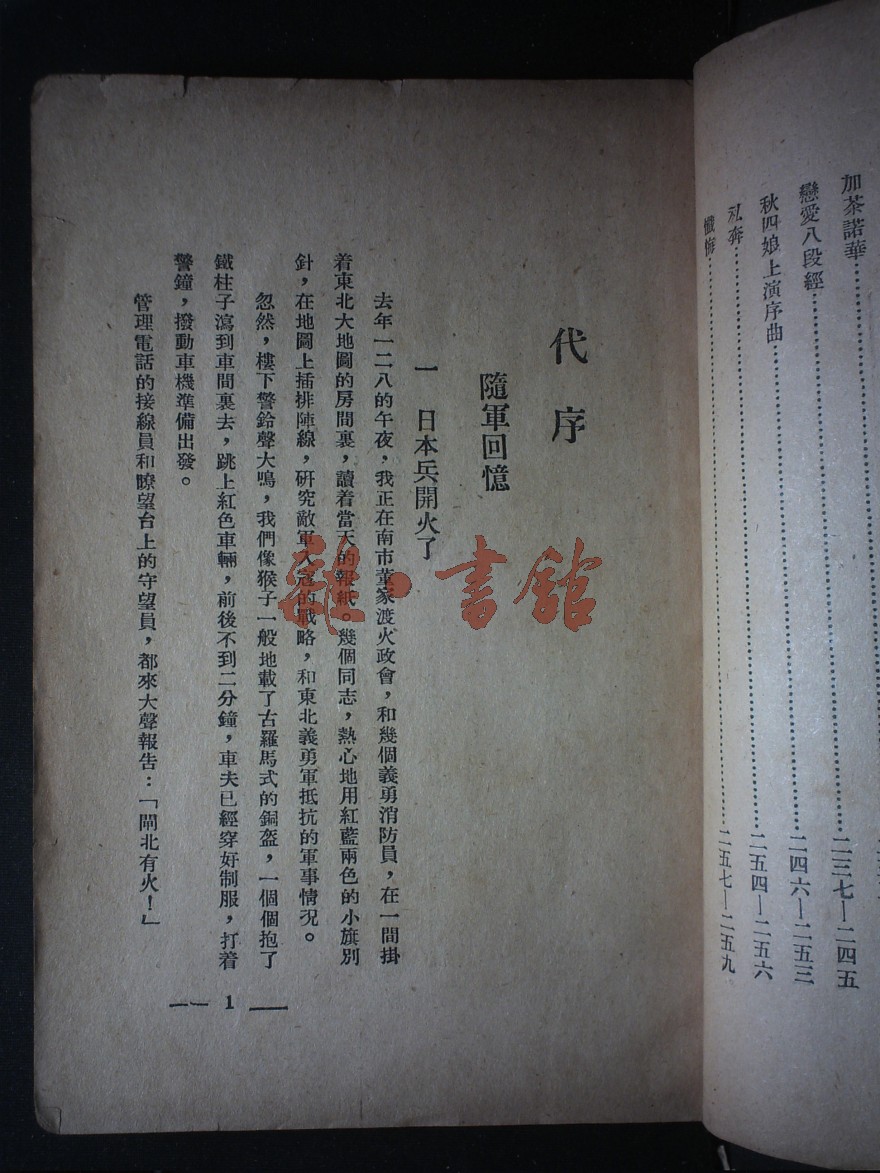 加茶諾華
戀愛八段經⋯⋯二三七—二四五
秋四娘上演序曲⋯⋯二四六—二五三
私奔⋯⋯二五四—二五六
懺悔⋯⋯二五七—二五九
代序
隨軍回憶
一 日本兵開火了
去年一二八的午夜，我正在南市董家渡火政會，和幾個義勇消防員，在一間掛
着東北大地圖的房間裏，讀着當天的報紙。幾個同志，熱心地用紅藍兩色的小旗別
針，在地圖上插排陣線，研究敵軍入寇的戰略，和東北義勇軍抵抗的軍事情况。
忽然，樓下警鈴聲大鳴，我們像猴子一般地載了古羅馬式的銅盔，一個個抱了
鐵柱子瀉到車間裏去，跳上紅色車輛，前後不到二分鐘，車夫已經穿好制服，打着
警鐘，撥動車機準備出發。
管理電話的接線員和瞭望台上的守望員，都來大聲報告：「閘北有火！」
1
書館